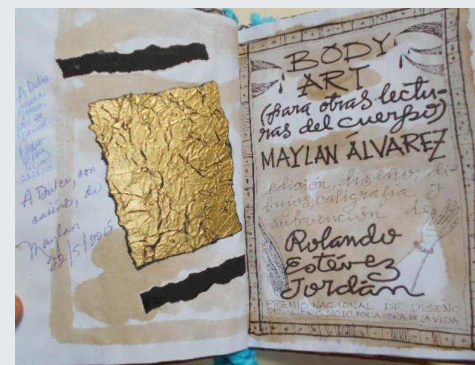 A Dulce
A Dulce, con
de
Maylan
22/5/2015
BODY
ART
(para otras lectu-
ras del cuerpo)
MAYLAN ÁLVAREZ
edición, diseño, di-
bujos, caligrafía y
subvención de
Rolando
Estévez
Jordán
PREMIO NACIONAL DE DISEÑO
DEL LIBRO 2010, POR LA OBRA DE LA VIDA